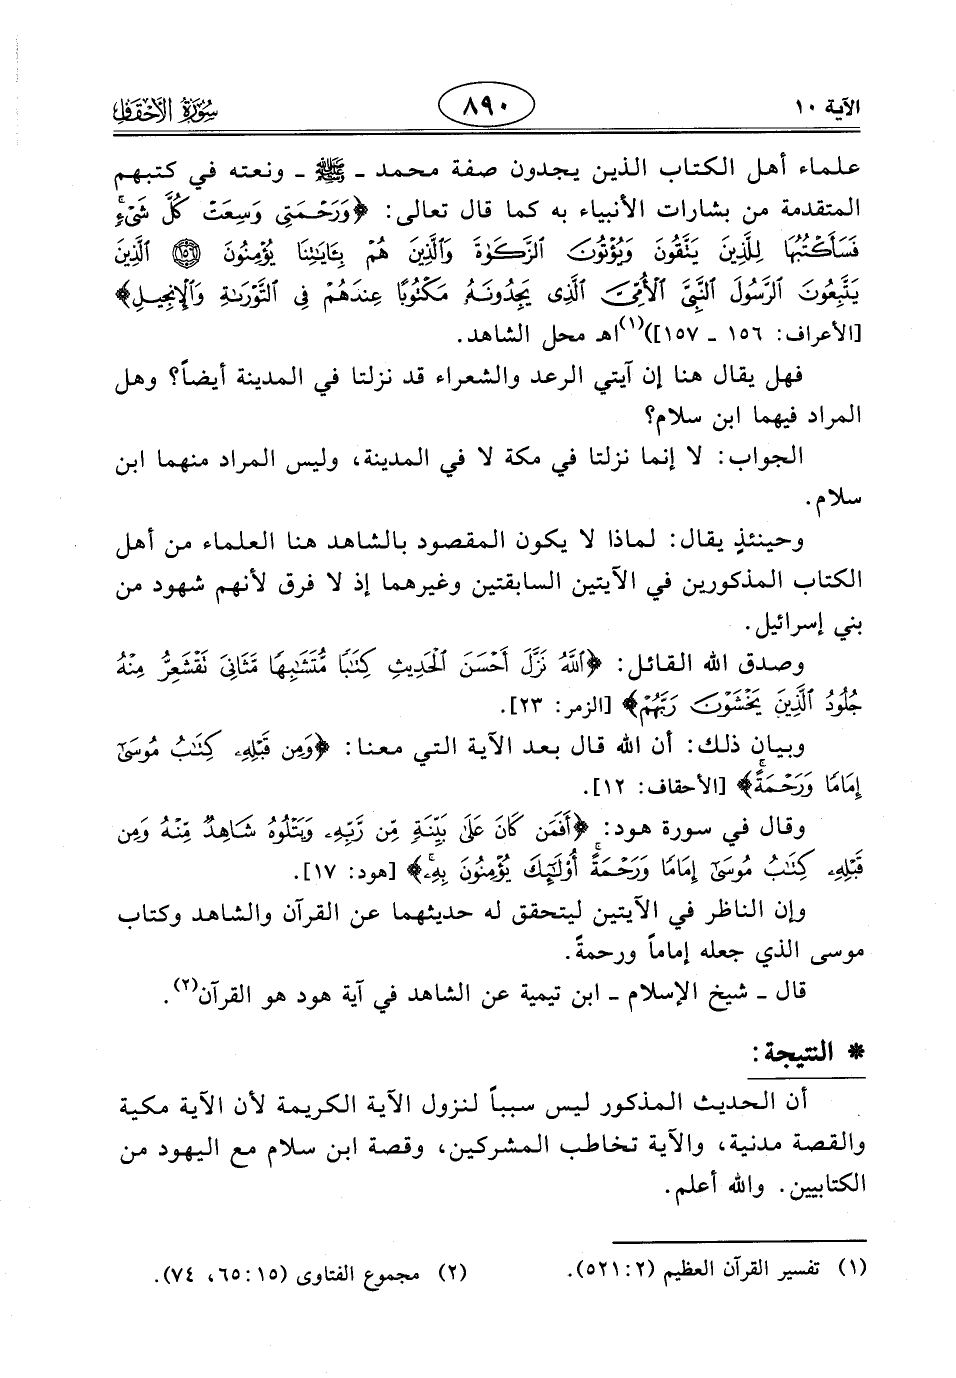 الآية ١٠
٨٩٠
سُورَةُ الأَحْقَافِ
علماء أهل الكتاب الذين يجدون صفة محمد ـ ﷺ ـ ونعته في كتبهم
المتقدمة من بشارات الأنبياء به كما قال تعالى: ﴿وَرَحْمَتِى وَسِعَتْ كُلَّ شَىْءٍۚ
فَسَأَكْتُبُهَا لِلَّذِينَ يَتَّقُونَ وَيُؤْتُونَ ٱلزَّكَوٰةَ وَٱلَّذِينَ هُم بِـَٔايَـٰتِنَا يُؤْمِنُونَ ١٥٦ ٱلَّذِينَ
يَتَّبِعُونَ ٱلرَّسُولَ ٱلنَّبِىَّ ٱلْأُمِّىَّ ٱلَّذِى يَجِدُونَهُۥ مَكْتُوبًا عِندَهُمْ فِى ٱلتَّوْرَىٰةِ وَٱلْإِنجِيلِ﴾
[الأعراف: ١٥٦ ـ ١٥٧])(١)اهـ محل الشاهد.
فهل يقال هنا إن آيتي الرعد والشعراء قد نزلتا في المدينة أيضاً؟ وهل
المراد فيهما ابن سلام؟
الجواب: لا إنما نزلتا في مكة لا في المدينة، وليس المراد منهما ابن
سلام.
وحينئذٍ يقال: لماذا لا يكون المقصود بالشاهد هنا العلماء من أهل
الكتاب المذكورين في الآيتين السابقتين وغيرهما إذ لا فرق لأنهم شهود من
بني إسرائيل.
وصدق الله القائل: ﴿ٱللَّهُ نَزَّلَ أَحْسَنَ ٱلْحَدِيثِ كِتَـٰبًا مُّتَشَـٰبِهًا مَّثَانِىَ تَقْشَعِرُّ مِنْهُ
جُلُودُ ٱلَّذِينَ يَخْشَوْنَ رَبَّهُمْ﴾ [الزمر: ٢٣].
وبيان ذلك: أن الله قال بعد الآية التي معنا: ﴿وَمِن قَبْلِهِۦ كِتَـٰبُ مُوسَىٰٓ
إِمَامًا وَرَحْمَةًۚ﴾ [الأحقاف: ١٢].
وقال في سورة هود: ﴿أَفَمَن كَانَ عَلَىٰ بَيِّنَةٍ مِّن رَّبِّهِۦ وَيَتْلُوهُ شَاهِدٌ مِّنْهُ وَمِن
قَبْلِهِۦ كِتَـٰبُ مُوسَىٰٓ إِمَامًا وَرَحْمَةًۚ أُو۟لَـٰٓئِكَ يُؤْمِنُونَ بِهِۦۚ﴾ [هود: ١٧].
وإن الناظر في الآيتين ليتحقق له حديثهما عن القرآن والشاهد وكتاب
موسى الذي جعله إماماً ورحمةً.
قال ـ شيخ الإسلام ـ ابن تيمية عن الشاهد في آية هود هو القرآن(٢).
* النتيجة:
أن الحديث المذكور ليس سبباً لنزول الآية الكريمة لأن الآية مكية
والقصة مدنية، والآية تخاطب المشركين، وقصة ابن سلام مع اليهود من
الكتابيين. والله أعلم.
(١) تفسير القرآن العظيم (٢:٥٢١).
(٢) مجموع الفتاوى (١٥:٦٥، ٧٤).